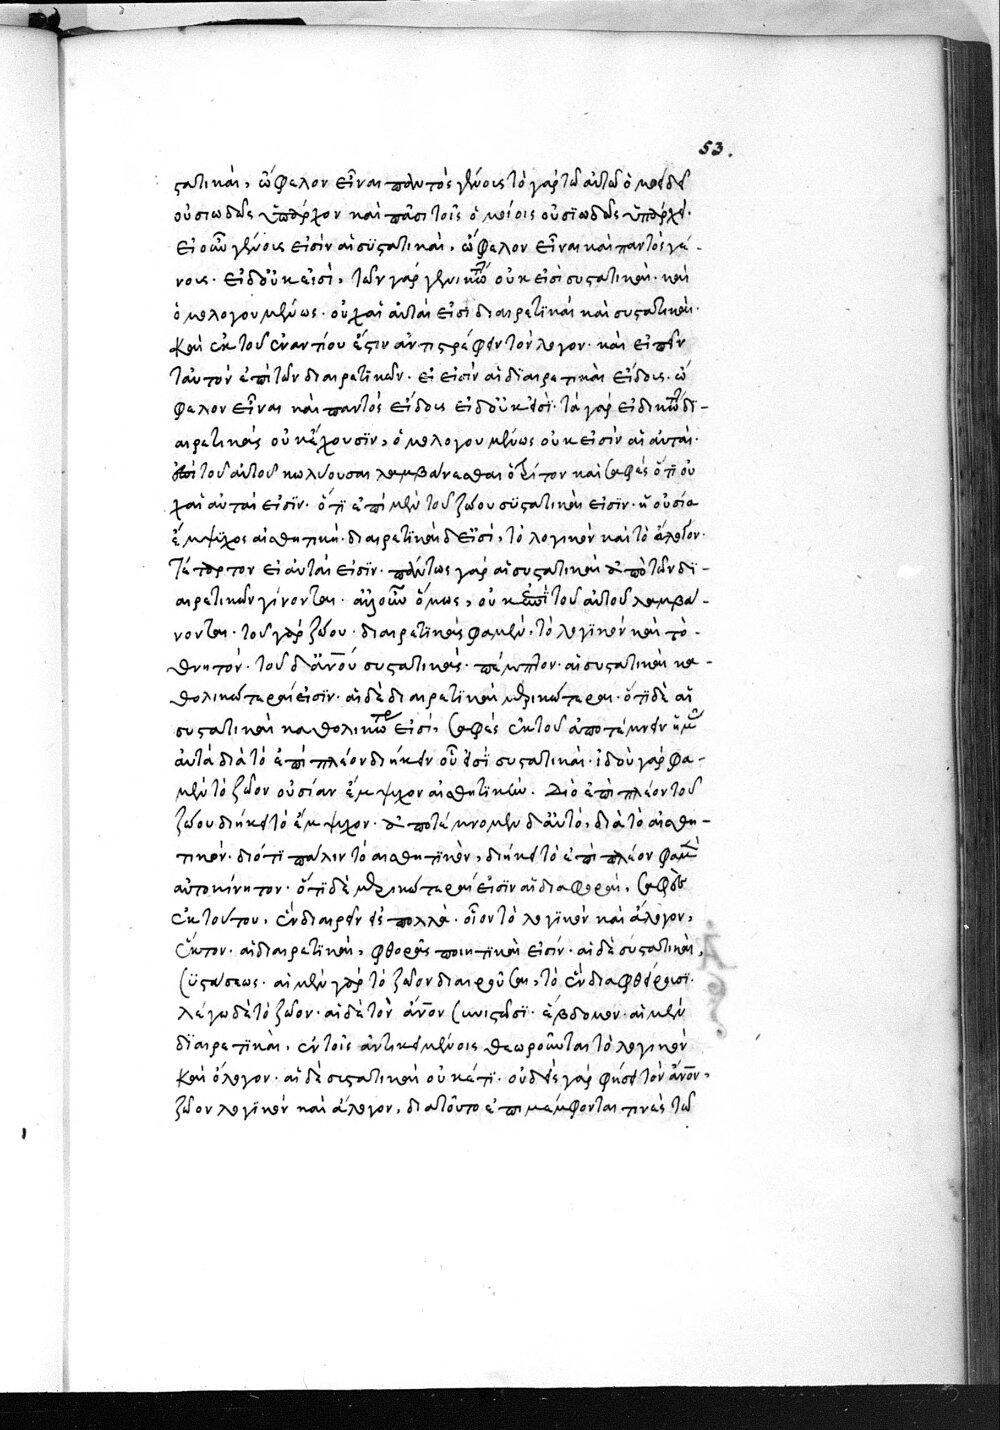 53.
στατικαὶ, ὤφελον εἶναι παντὸς γένους τὸ γὰρ τῶ αὐτῶ ὁμοειδεῖ
οὐσιωδῶς ὑπάρχον καὶ πᾶσι τοῖς ὁμοίοις οὐσϊωδῶς ὑπάρχει·
εἰ οὖν γένους εἰσὶν αἱ συστατικαὶ, ὤφελον εἶναι καὶ παντὸς γέ-
νους· εἰ δ' οὐκ εἰσὶ, τῶν γὰρ γενικωτάτων οὐκ εἰσὶ συστατικαὶ· καὶ
ὁμολογουμένως· οὐχ αἱ αὐταὶ εἰσὶ διαιρετϊκαὶ καὶ συστατικαὶ·
καὶ ἐκ τοῦ ἐναντίου ἔστιν ἀντιστρέφειν τὸν λόγον· καὶ εἰπεῖν
ταὐτὸν ἐπὶ τῶν διαιρετϊκῶν· εἰ εἰσὶν αἱ δϊαιρετικαὶ εἴδους· ὤ
φελον εἶναι καὶ παντὸς εἴδους εἰ δ' οὐκ εἰσϊ· τὰ γὰρ εἰδικώτατα δι-
αιρετικὰς οὐκ ἔχουσϊν, ὁμολογουμένως οὐκ εἰσὶν αἱ αὐταὶ·
ἐπὶ τοῦ αὐτοῦ κωλύουσαι λαμβάνεσθαι τρίτον καὶ σαφὲς ὅτϊ οὐ
χ αἱ αὐταὶ εἰσϊν· ὅτϊ ἐπὶ μὲν τοῦ ζώου συστατικαὶ εἰσϊν· ἡ οὐσία
ἔμψυχος αἰσθητικὴ· διαιρετϊκαὶ δ' εἰσὶ, τὸ λογικὸν καὶ τὸ ἄλογον·
τέταρτον εἰ αὐταὶ εἰσϊν· πάντως γὰρ αἱ συστατικαὶ ἀπὸ τῶν δϊ-
αιρετικῶν γίνονται· ἀλλ' οὖν ὅμως, οὐκ ἐπὶ τοῦ αὐτοῦ λαμβά-
νονται· τοῦ γὰρ ζώου· διαιρετϊκὰς φαμὲν, τὸ λογϊκὸν καὶ τὸ
θνητόν· τοῦ δ' ἀνου συστατικὰς· πέμπτον· αἱ συστατικαὶ κα-
θολικώτεραί εἰσϊν· αἱ δὲ διαιρετϊκαὶ μερικώτεραι· ὅτϊ δὲ αἱ
συστατικαὶ καθολικώτεραι εἰσὶ, σαφὲς ἐκ τοῦ ἀποτέμνειν ἡμᾶς
αὐτὰ διὰ τὸ ἐπὶ πλέον διήκειν οὗ εἰσϊ συστατικαὶ· ἰδοὺ γὰρ φα-
μὲν τὸ ζῶον οὐσίαν ἔμψυχον αἰσθητϊκήν. Διὸ ἐπὶ πλέον τοῦ
ζώου διήκει τὸ ἔμψυχον· ἀποτέμνομεν δ' αὐτὸ, διὰ τὸ αἰσθη-
τικὸν· διότϊ πάλιν τὸ αἰσθητϊκὸν, διήκει τὸ ἐπὶ πλέον φαμὲν
αὐτοκίνητον· ὅτϊ δὲ μερικώτεραί εἰσϊν αἱ διαφοραὶ, σαφὲς
ἐκ τούτου, ἐν διαιρεῖν εἰς πολλὰ· οἷον τὸ λογϊκὸν καὶ ἄλογον,
ἕκτον· αἱ διαιρετϊκαὶ, φθορᾶς ποιητϊκαὶ εἰσὶν· αἱ δὲ συστατικαὶ,
συστάσεως· αἱ μὲν γὰρ τὸ ζῶον διαιροῦσαι, τὸ ἓν διαφθείρουσϊ·
λέγω δὲ τὸ ζῶον· αἱ δὲ τὸν ἄνον συνιστῶσϊ· ἕβδομον· αἱ μὲν
δϊαιρετϊκαὶ, ἐν τοῖς ἀντικειμένοις θεωροῦνται τὸ λογικὸν
καὶ ἄλογον· αἱ δὲ συστατικαὶ οὐκέτϊ· οὐδεὶς γὰρ φήσει τὸν ἄνον,
ζῶον λογϊκὸν καὶ ἄλογον, διατοῦτο ἐπιμέμφονται τινὲς τῶ